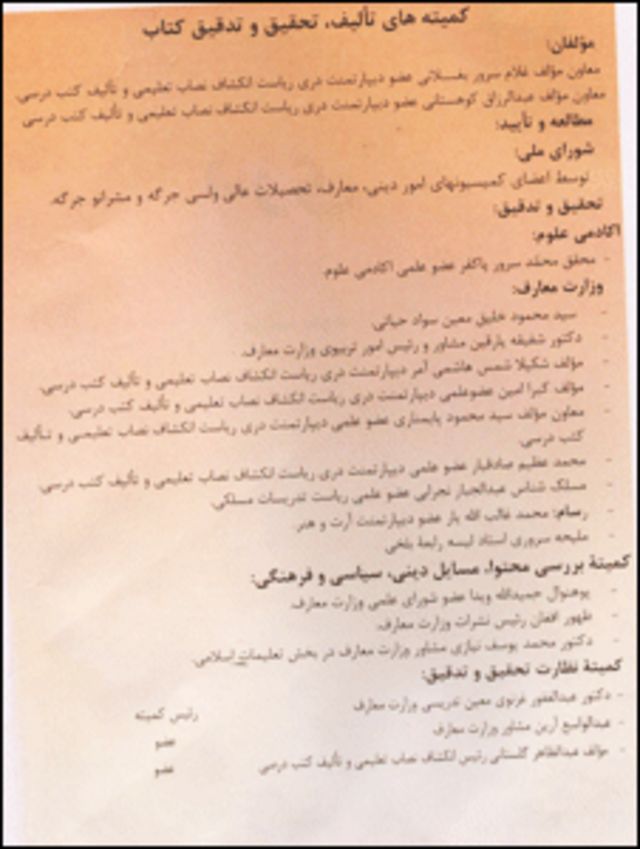 کمیته های تألیف، تحقیق و تدقیق کتاب
مؤلفان:
معاون مؤلف غلام سرور بغـلانی عضو دیپارتمنت دری ریاست انکشاف نصاب تعلیمی و تألیف کتب درسی.
معاون مؤلف عبدالرزاق کوهستانی عضو دیپارتمنت دری ریاست انکشاف نصاب تعلیمی و تألیف کتب درسی
مطالعه و تأیید:
شورای ملی:
توسط اعضای کمیسیونهای امور دینی، معارف، تحصیلات عالی ولسی جرگه و مشرانو جرگه.
تحقیق و تدقیق:
اکادمی علوم:
- محقق محمّد سرور پاکفر عضو علمی اکادمی علوم.
وزارت معارف:
- سید محمود خلیق معین سواد حیاتی.
- دکتور شفیقه یارقین مشاور و رئیس امور تربیوی وزارت معارف.
- مؤلف شکیلا شمس هاشمی آمر دیپارتمنت دری ریاست انکشاف نصاب تعلیمی و تألیف کتب درسی.
- مؤلف کبرا امین عضوعلمی دیپارتمنت دری ریاست انکشاف نصاب تعلیمی و تألیف کتب درسی.
- معاون مؤلف سید محمود عضو علمی دیپارتمنت دری ریاست انکشاف نصاب تعلیمـی و تـألیف
کتب درسی.
- محمد عظیم صادقیار عضو علمی دیپارتمنت دری ریاست انکشاف نصاب تعلیمی و تألیف کتب درسی.
- مسلک شناس عبدالجبار نجرابی عضو علمی ریاست تدریسات مسلکی.
- رسام: محمد غالب الله یار عضو دیپارتمنت آرت و هنر.
- ملیحه سروری استاد لیسه رابعۀ بلخی
کمیتۀ بررسی محتوا، مسایل دینی، سیاسی و فرهنگی:
- پوهنوال حمیدالله ویدا عضو شورای علمی وزارت معارف.
- ظهور افغان رئیس نشرات وزارت معارف.
- دکتور محمد یوسف نیازی مشاور وزارت معارف در بخش تعلیمات اسلامی.
کمیتۀ نظارت تحقیق و تدقیق:
- دکتور عبدالغفور غزنوی معین تدریسی وزارت معارف رئیس کمیته
- عبدالواسع آرین مشاور وزارت معارف عضو
- مؤلف عبدالظاهر گلستانی رئیس انکشاف نصاب تعلیمی و تألیف کتب درسی عضو